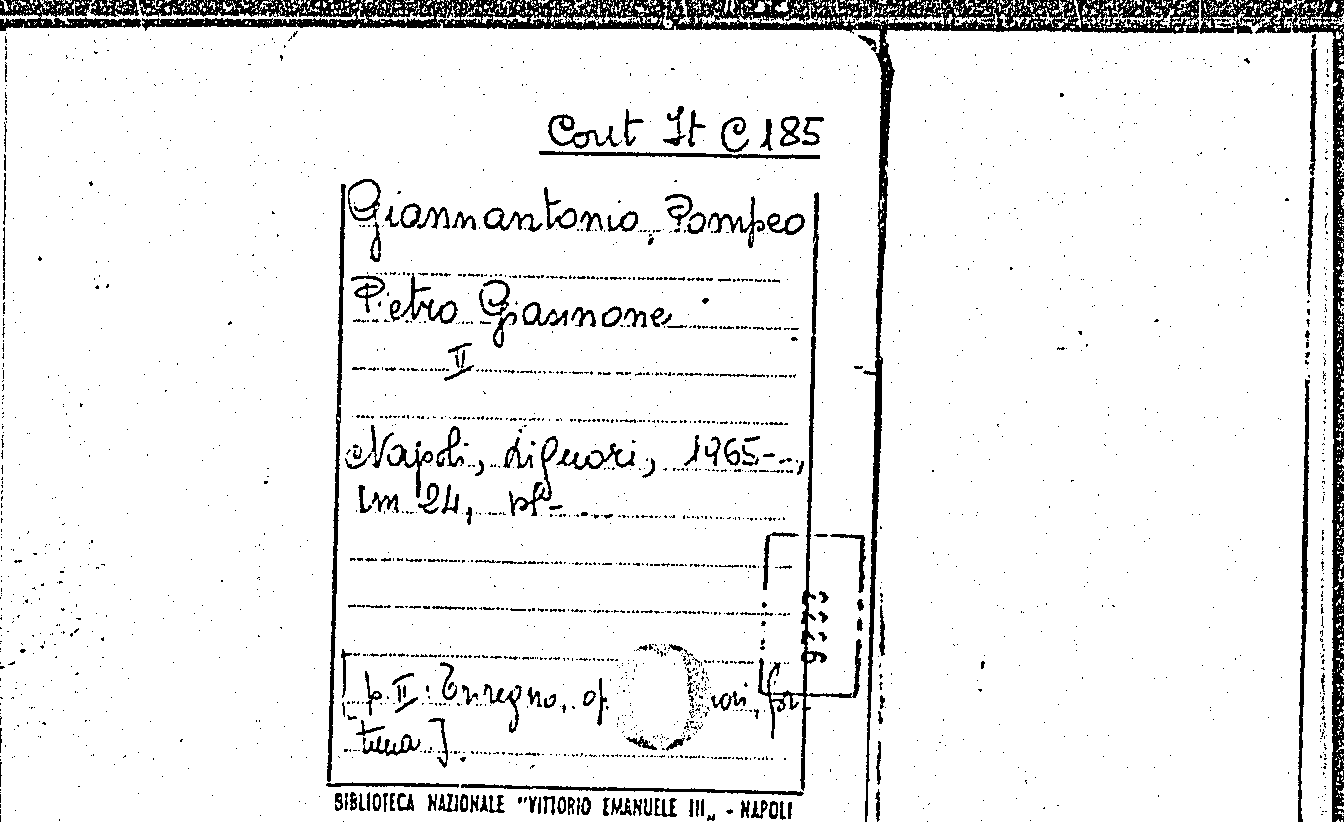 Cont It C 185
Giannantonio, Pompeo
Pietro Giannone
II
Napoli, Liguori, 1965-..,
cm 24, pp- ...
[p. II: op. for-
tuna].
BIBLIOTECA NAZIONALE "VITTORIO EMANUELE III„ - NAPOLI